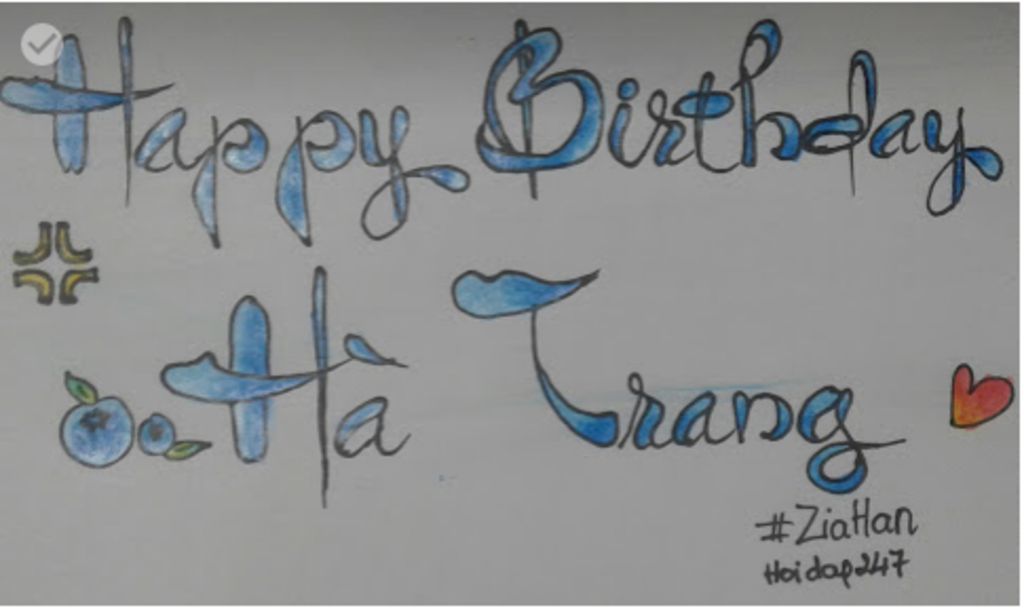 Happy Birthday
Hà Trang
#ZiaHan
Hoidap247